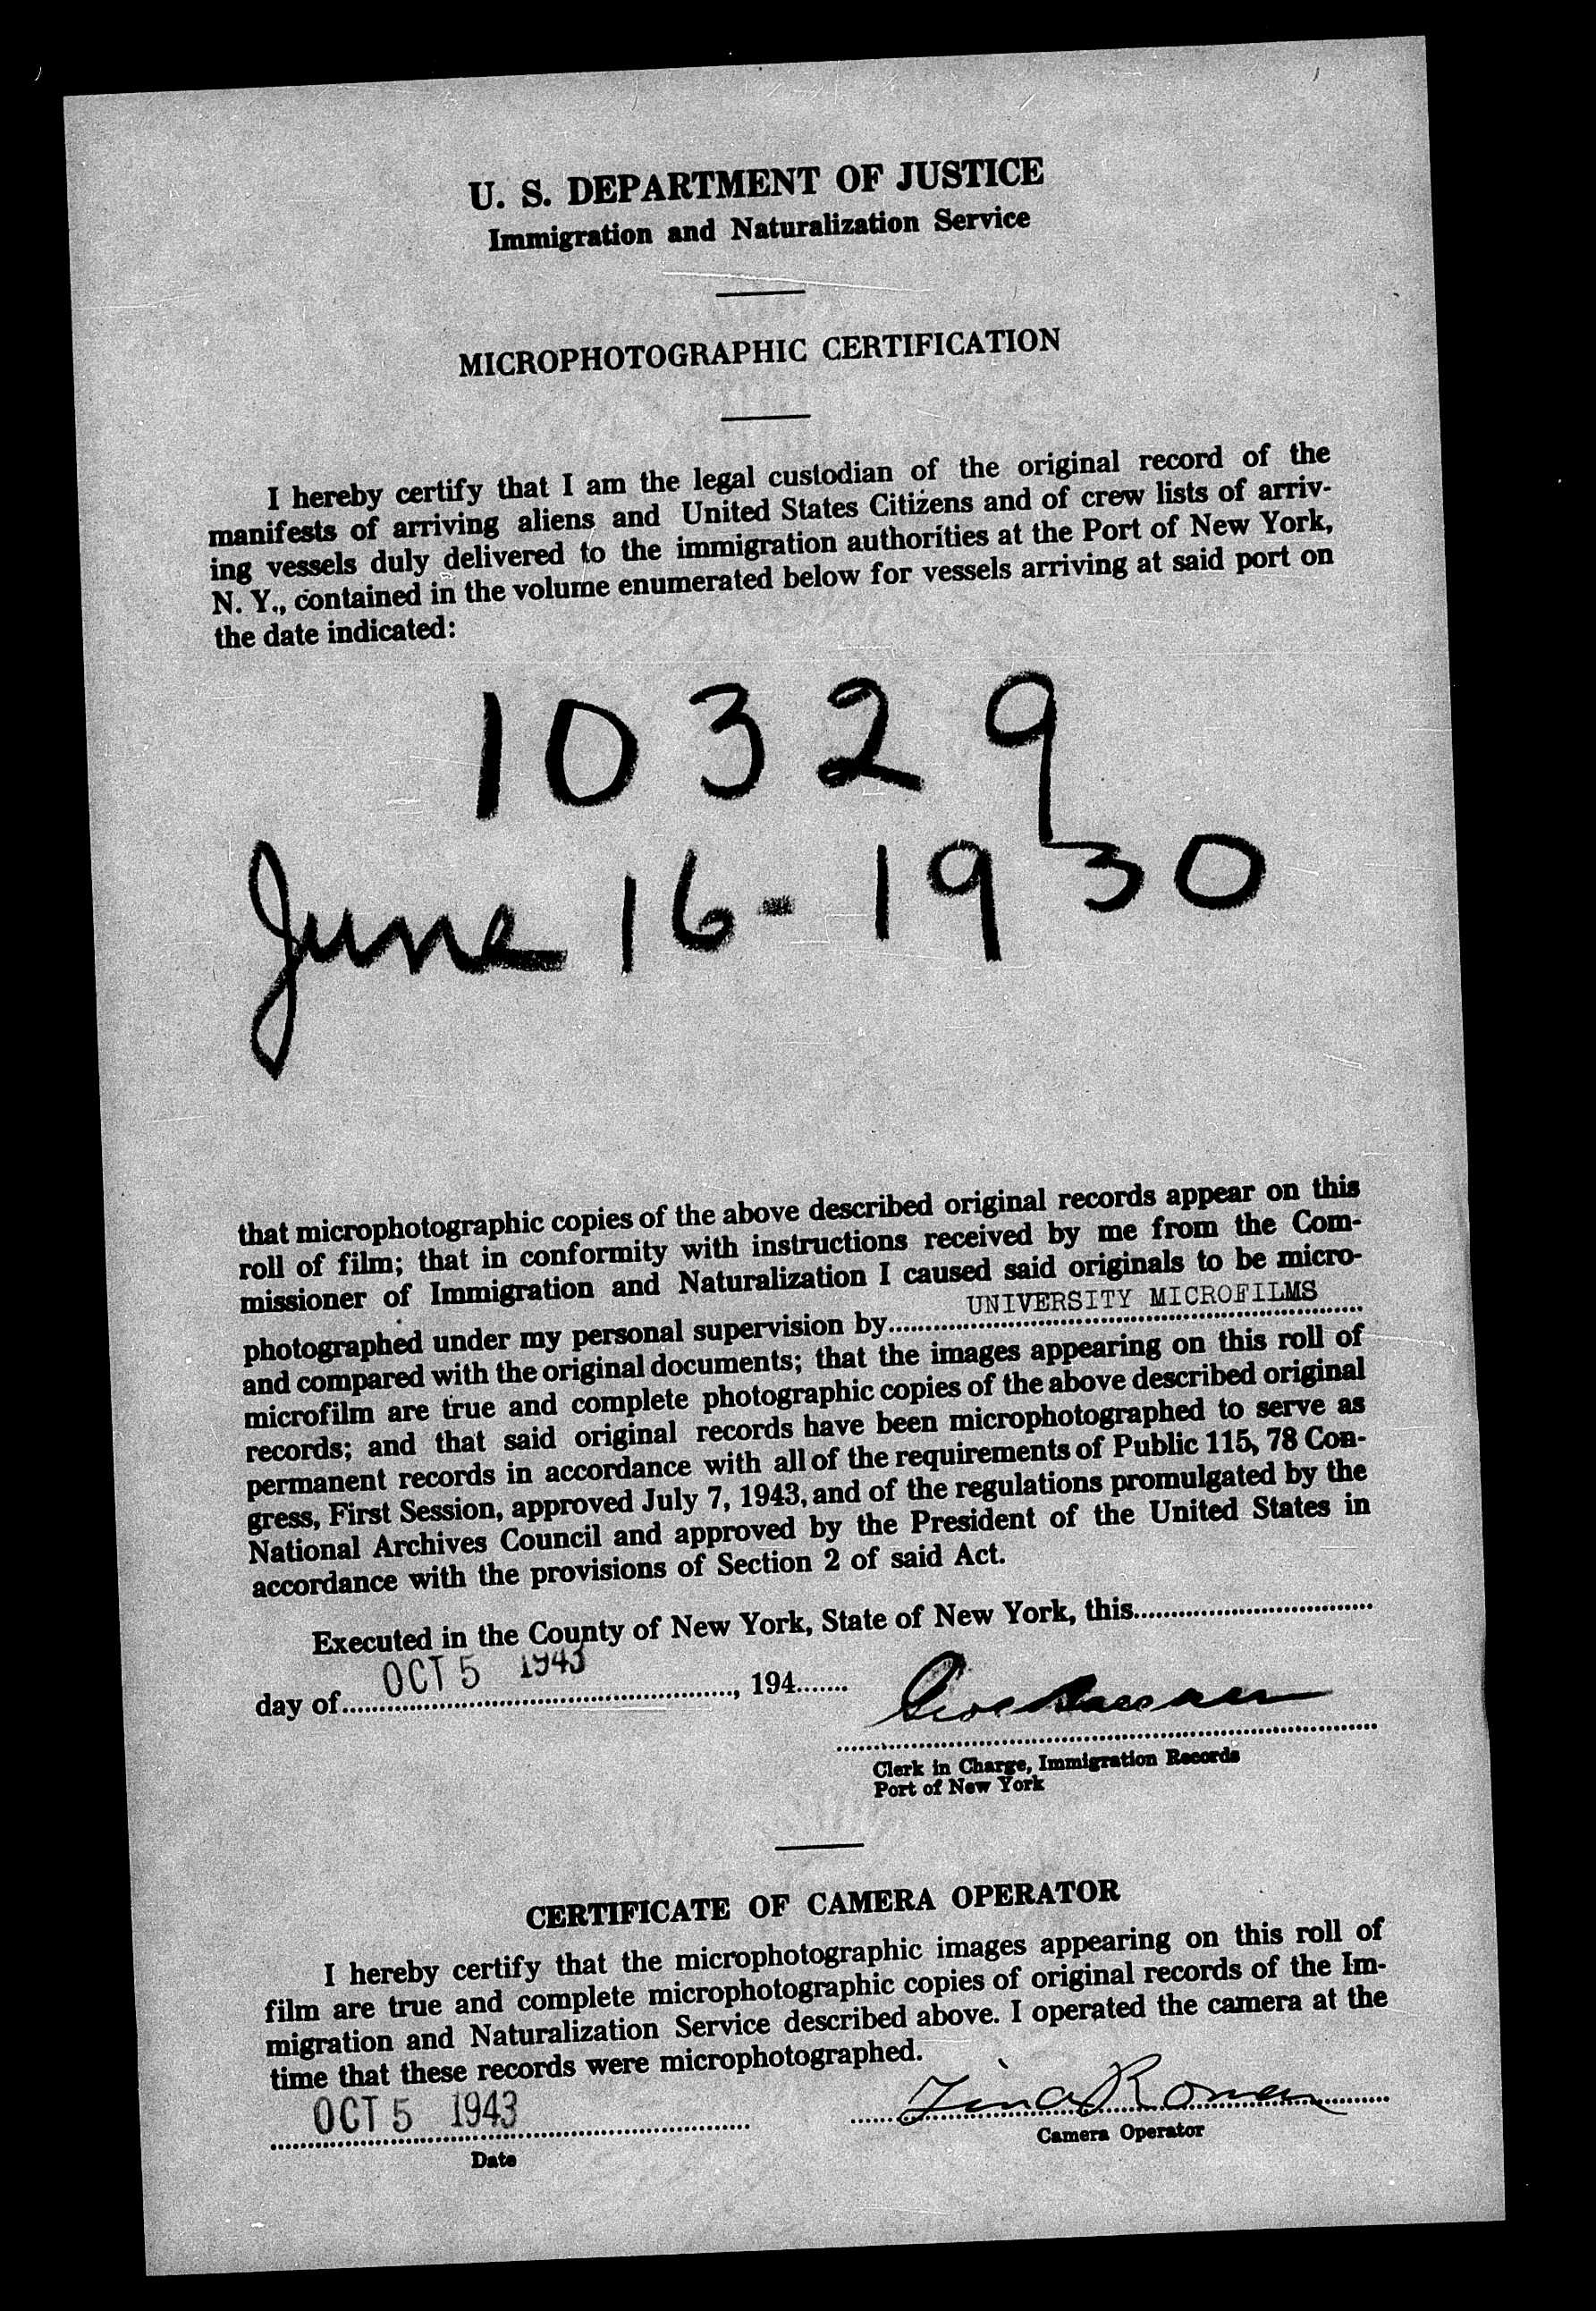 U. S. DEPARTMENT OF JUSTICE
Immigration and Naturalization Service
MICROPHOTOGRAPHIC CERTIFICATION
I hereby certify that I am the legal custodian of the original record of the
manifests of arriving aliens and United States Citizens and of crew lists of arriv-
ing vessels duly delivered to the immigration authorities at the Port of New York,
N. Y., contained in the volume enumerated below for vessels arriving at said port on
the date indicated:
10329
June 16-1930
that microphotographic copies of the above described original records appear on this
roll of film; that in conformity with instructions received by me from the Com-
missioner of Immigration and Naturalization I caused said originals to be micro-
photographed under my personal supervision by UNIVERSITY MICROFILMS
and compared with the original documents; that the images appearing on this roll of
microfilm are true and complete photographic copies of the above described original
records; and that said original records have been microphotographed to serve as
permanent records in accordance with all of the requirements of Public 115, 78 Con-
gress, First Session, approved July 7, 1943, and of the regulations promulgated by the
National Archives Council and approved by the President of the United States in
accordance with the provisions of Section 2 of said Act.
Executed in the County of New York, State of New York, this
day of OCT 5 1943, 194
Clerk in Charge, Immigration Records
Port of New York
CERTIFICATE OF CAMERA OPERATOR
I hereby certify that the microphotographic images appearing on this roll of
film are true and complete microphotographic copies of original records of the Im-
migration and Naturalization Service described above. I operated the camera at the
time that these records were microphotographed.
OCT 5 1943
Date
Camera Operator